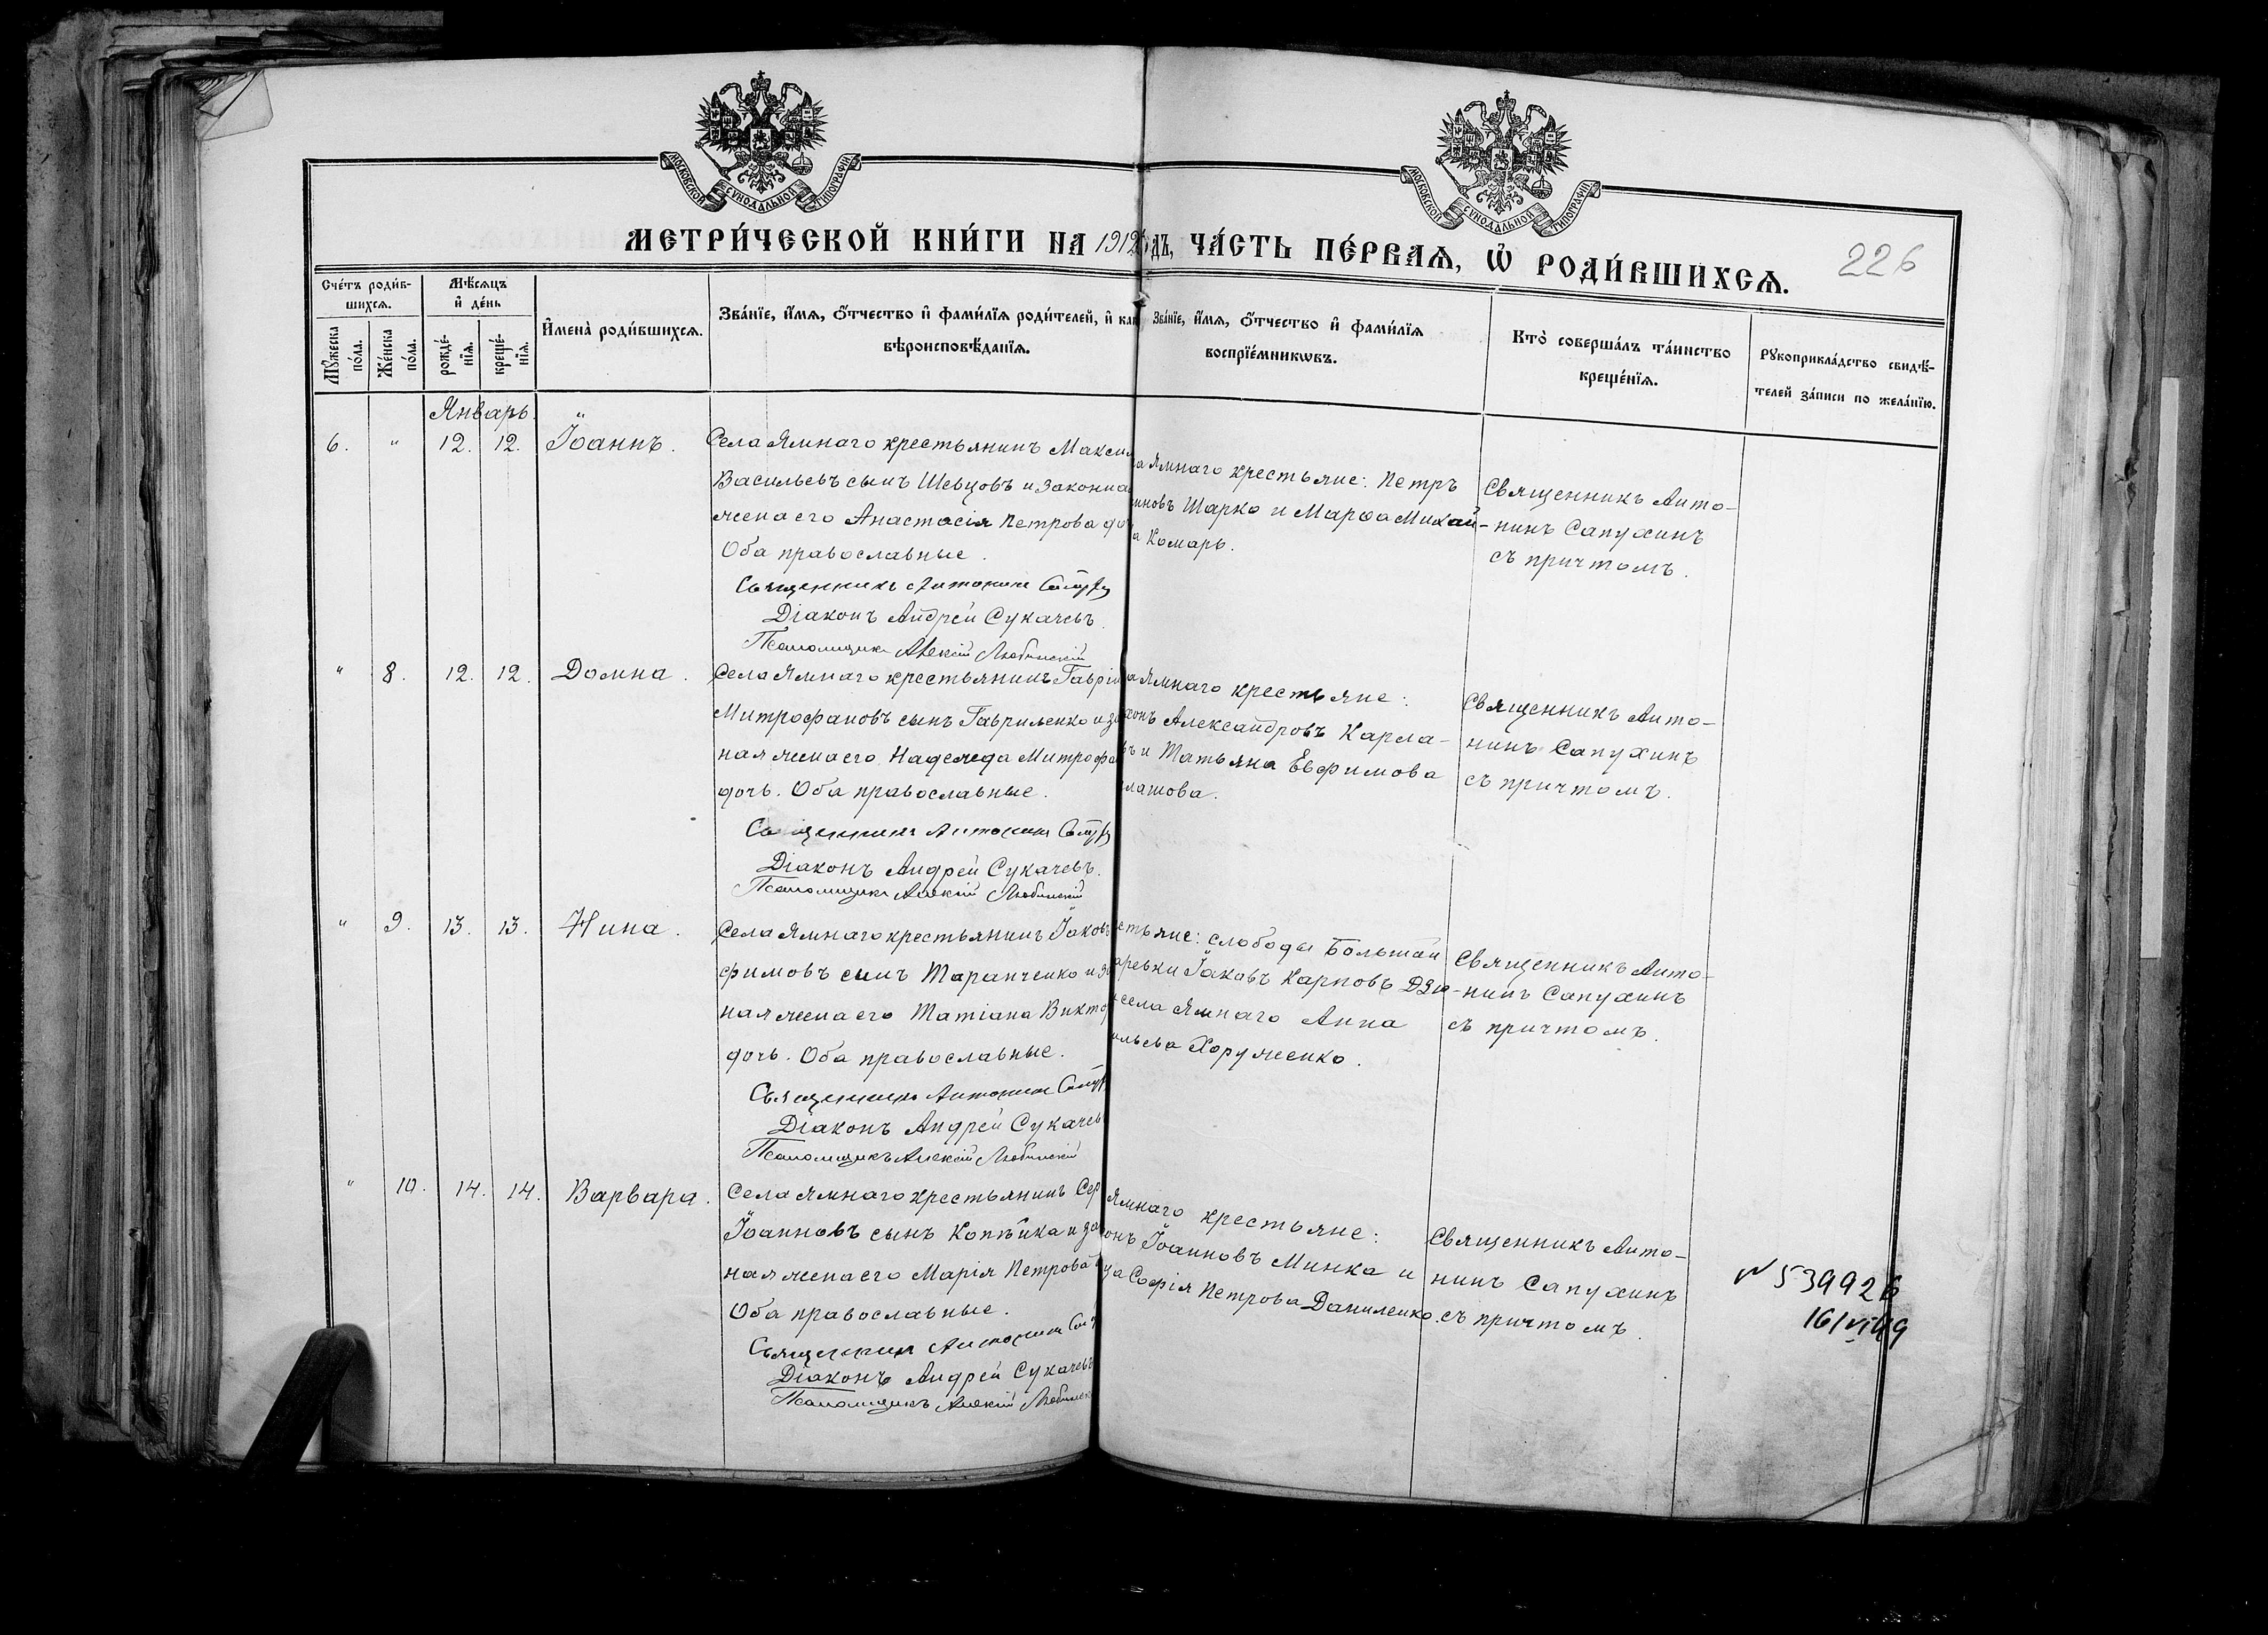 МОСКОВСКОЙ СУНОДАЛЬНОЙ ТИПОГРАФІИ
МОСКОВСКОЙ СУНОДАЛЬНОЙ ТИПОГРАФІИ
МЕТРИ́ЧЕСКОЙ КНИ́ГИ НА 1912 ГОДЪ, ЧА́СТЬ ПЕ́РВАѦ, Ѡ РОДИ́ВШИХСѦ.
226
Сче́тъ роди́в-
шихсѧ.
Мѣ́сѧцъ
и де́нь
Мꙋ́жеска
по́ла.
Же́нска
по́ла.
рожде́-
нїѧ.
креще́-
нїѧ.
Имена̀ роди́вшихсѧ.
Зва́нїе, и́мѧ, ѻ́тчество и фами́лїѧ роди́телей, и как
вѣроисповѣ́данїѧ.
Зва́нїе, и́мѧ, ѻ́тчество и фами́лїѧ
воспрїе́мникѡвъ.
Кто̀ соверша́лъ та́инство
креще́нїѧ.
Рꙋкоприкла́дство свидѣ́-
телей за́писи по жела́нїю.
Январь.
6. " 12. 12. Іоаннъ.
Села Ямнаго крестьянинъ Макси
Васильевъ сынъ Шевцовъ и законна
жена его Анастасія Петрова до
Оба православные.
Священникъ Антонинъ
Діаконъ Андрей Сукачевъ.
Псаломщикъ Алексій Любинскій
а Ямнаго крестьяне: Петръ
иновъ Шарко и Марѳа Михай-
а Комарь.
Священникъ Анто-
нинъ Сапухинъ
съ причтомъ.
" 8. 12. 12. Домна.
Села Ямнаго крестьянинъ Гаврі
Митрофановъ сынъ Гавриленко и за
ная жена его Надежда Митрофа
дочь. Оба православные.
Священникъ Антонинъ
Діаконъ Андрей Сукачевъ.
Псаломщикъ Алексій Любинскій
а Ямнаго крестьяне:
хонъ Александровъ Карла-
ъ и Татьяна Евфимова
лашова.
Священникъ Анто-
нинъ Сапухинъ
съ причтомъ.
" 9. 13. 13. Нина.
Села Ямнаго крестьянинъ Іаковъ
фимовъ сынъ Таранченко и за
ная жена его Татіана Викто
дочь. Оба православные.
Священникъ Антонинъ
Діаконъ Андрей Сукачев
Псаломщикъ Алексій Любинскій
стьяне: слободы Большой
аревки Іаковъ Карповъ Дзю-
села Ямнаго Анна
ильева Хоруженко.
Священникъ Анто-
нинъ Сапухинъ
съ причтомъ.
" 10. 14. 14. Варвара.
Села Ямнаго крестьянинъ Сер
Іоанновъ сынъ Копѣйка и за
ная жена его Марія Петрова
Оба православные.
Священникъ Антонинъ
Діаконъ Андрей Сукачевъ
Псаломщикъ Алексій
Ямнаго крестьяне:
онъ Іоанновъ Минка и
ца Софія Петрова Даниленко.
Священникъ Анто-
нинъ Сапухинъ
съ причтомъ.
№ 539926
16/VI 49